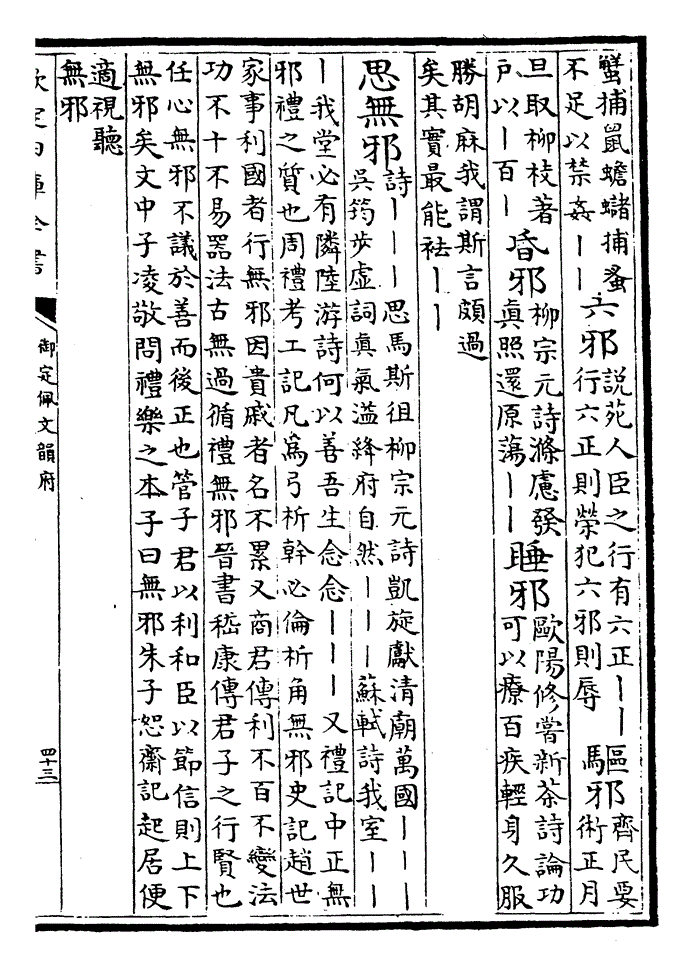 蟹捕鼠蟾蠩捕蚤
不足以禁姦｜｜
六邪
說苑人臣之行有六正｜｜
行六正則榮犯六邪則辱
驅邪
齊民要
術正月
旦取柳枝著
戸以｜百｜
昏邪
柳宗元詩滌慮發
眞照還原蕩｜｜
睡邪
歐陽修嘗新茶詩論功
可以療百疾輕身久服
勝胡麻我謂斯言頗過
矣其實最能袪｜｜
思無邪
詩｜｜｜思馬斯徂柳宗元詩凱旋獻清廟萬國｜｜｜
吳筠步虛詞眞氣溢絳府自然｜｜｜蘇軾詩我室｜｜
｜我堂必有隣陸游詩何以善吾生念念｜｜｜又禮記中正無
邪禮之質也周禮考工記凡爲弓析幹必倫析角無邪史記趙世
家事利國者行無邪因貴戚者名不累又商君傳利不百不變法
功不十不易器法古無過循禮無邪晉書嵇康傳君子之行賢也
任心無邪不議於善而後正也管子君以利和臣以節信則上下
無邪矣文中子凌敬問禮樂之本子曰無邪朱子恕齋記起居便
適視聽
無邪
欽定四庫全書
御定佩文韻府
四十三